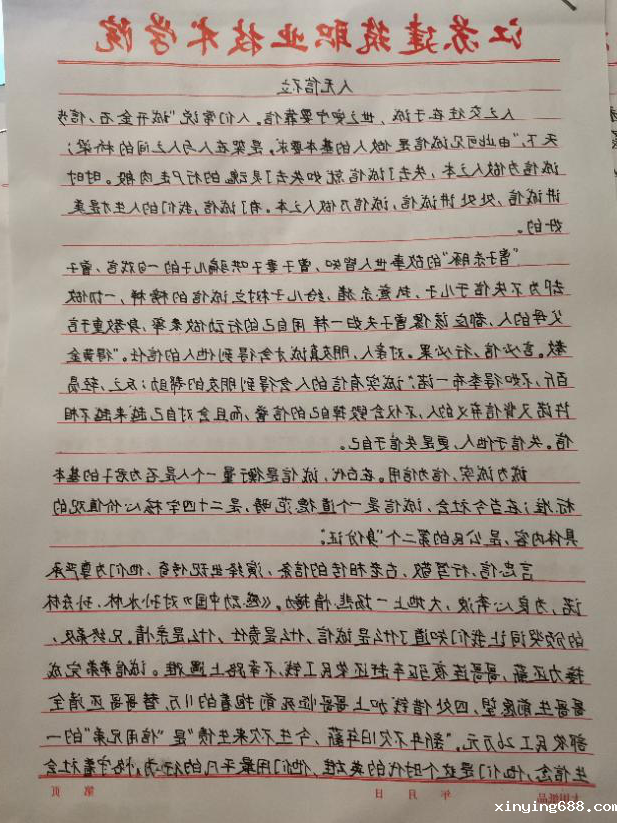 江苏建筑职业技术学院
人无信不立
人之交往在于诚，世之安宁要靠信。人们常说"诚开金石，信步
天下"由此可见诚信是做人的基本要求，是架在人与人之间的桥梁；
诚信为做人之本，失去了诚信就如失去了灵魂的行尸走肉般。时时
讲诚信，处处讲诚信，诚信乃做人之本。有了诚信，我们的人生才是美
好的。
"曾子杀豚"的故事世人皆知，曾子妻子哄骗儿子的一句戏言，曾子
却为不失信于儿子，执意杀猪，给儿子树立诚信的榜样，一切做
父母的人，都应该像曾子夫妇一样用自己的行动做表率，身教重于言
教。言必信，行必果。对亲人，朋友真诚才会得到他人的信任。"得黄金
百斤，不如得季布一诺"，诚实有信的人会得到朋友的帮助；反之，轻易
许诺又背信弃义的人，不仅会毁掉自己的信誉，而且会对自己越来越不相
信。失信于他人，更是失信于自己。
诚为诚实，信为信用。在古代，诚信是衡量一个人是否为君子的基本
标准；在当今社会，诚信是一个道德范畴，是二十四字核心价值观的
具体内容，是公民的第二个"身份证"。
言忠信，行笃敬，古老相传的信条，演绎出现世传奇，他们为尊严承
诺，为良心奔波，大地上一场悲情接力。《感动中国》对孙水林、孙东林
的颁奖词让我们知道了什么是诚信，什么是责任，什么是亲情。兄终弟及，
接力还薪，哥哥连夜驱车赶还农民工钱，不幸路上遇难。诚信弟弟完成
哥哥生前愿望，四处借钱加上哥哥临死前抱着的几万，替哥哥还清全
部农民工26万元，"新年不欠旧年薪，今生不欠来生债"是"信用兄弟"的一
生信念，他们是这个时代的英雄，他们用最平凡的行为，恪守着社会
第 页
年 月 日
xinying688.com